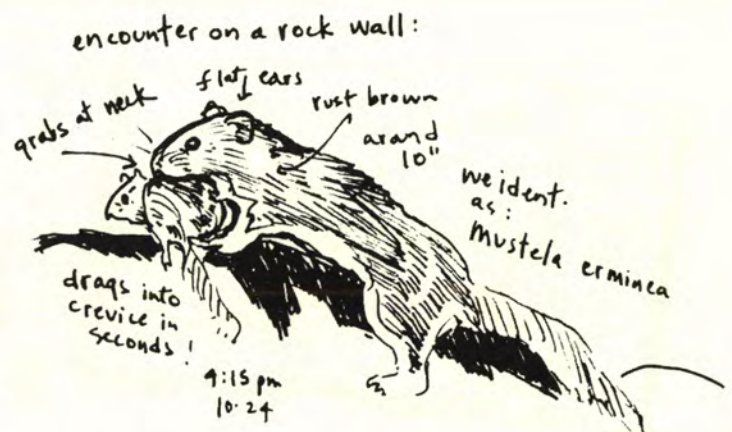 encounter on a rock wall:
flat ears
grabs at neck
rust brown
arand
10"
we ident.
as:
Mustela erminea
drags into
crevice in
seconds!
4:15 pm
10.24